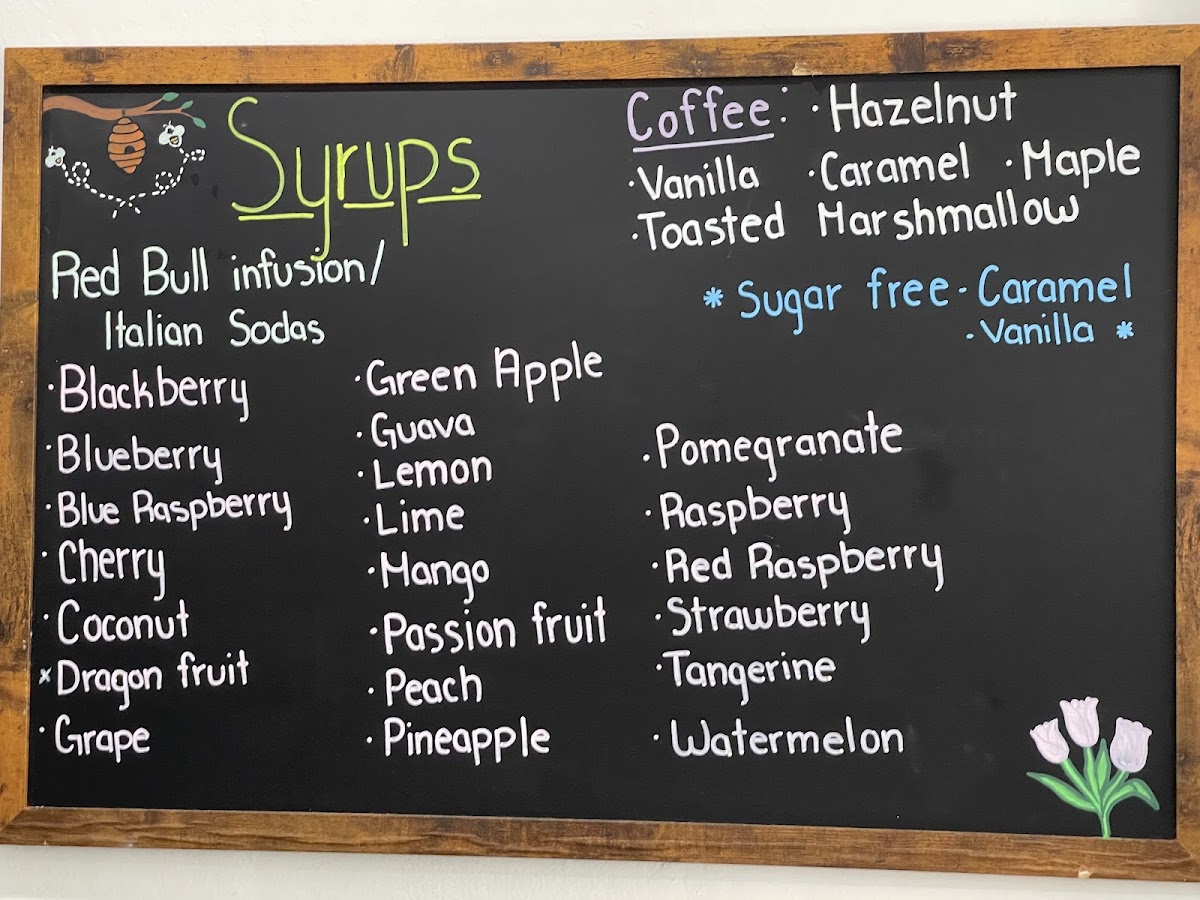 Syrups
Coffee: · Hazelnut
· Vanilla · Caramel · Maple
· Toasted Marshmallow
* Sugar free - Caramel
- Vanilla *
Red Bull infusion/
Italian Sodas
· Blackberry
· Blueberry
· Blue Raspberry
· Cherry
· Coconut
× Dragon fruit
· Grape
· Green Apple
· Guava
· Lemon
· Lime
· Mango
· Passion fruit
· Peach
· Pineapple
· Pomegranate
· Raspberry
· Red Raspberry
· Strawberry
· Tangerine
· Watermelon